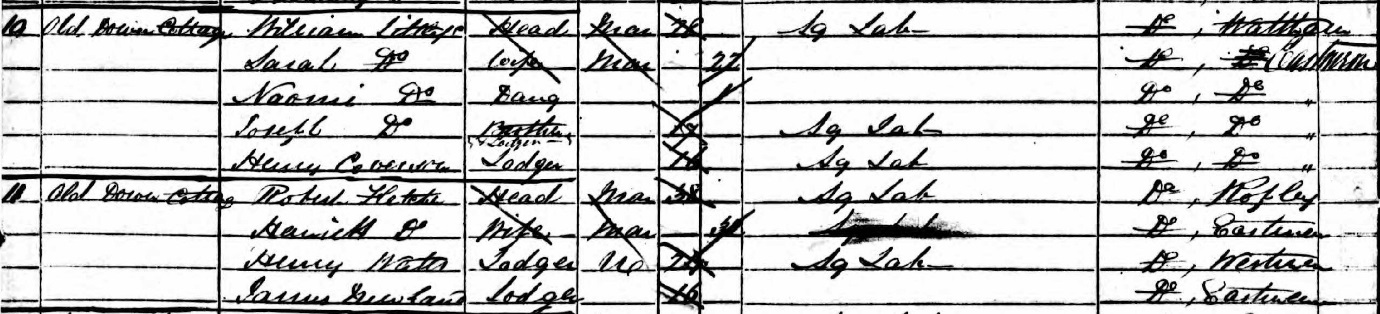 10 Old Down Cottage William Head Mar 26 Ag Lab Do, Waltham
Sarah Do Wife Mar 22 Do, Do Eastmeon
Naomi Do Daug 1 Do, Do "
Joseph Do Brother Lodger 17 Ag Lab Do, Do "
Henry Lodger 16 Ag Lab Do, Do "
11 Old Down Cottag Robert Fletche Head Mar 38 Ag Lab Do, Ropley
Do Wife Mar Do, Eastmeon
Henry Lodger Un Ag Lab Do, Westmeon
James Lodger 16 Do, Eastmeon